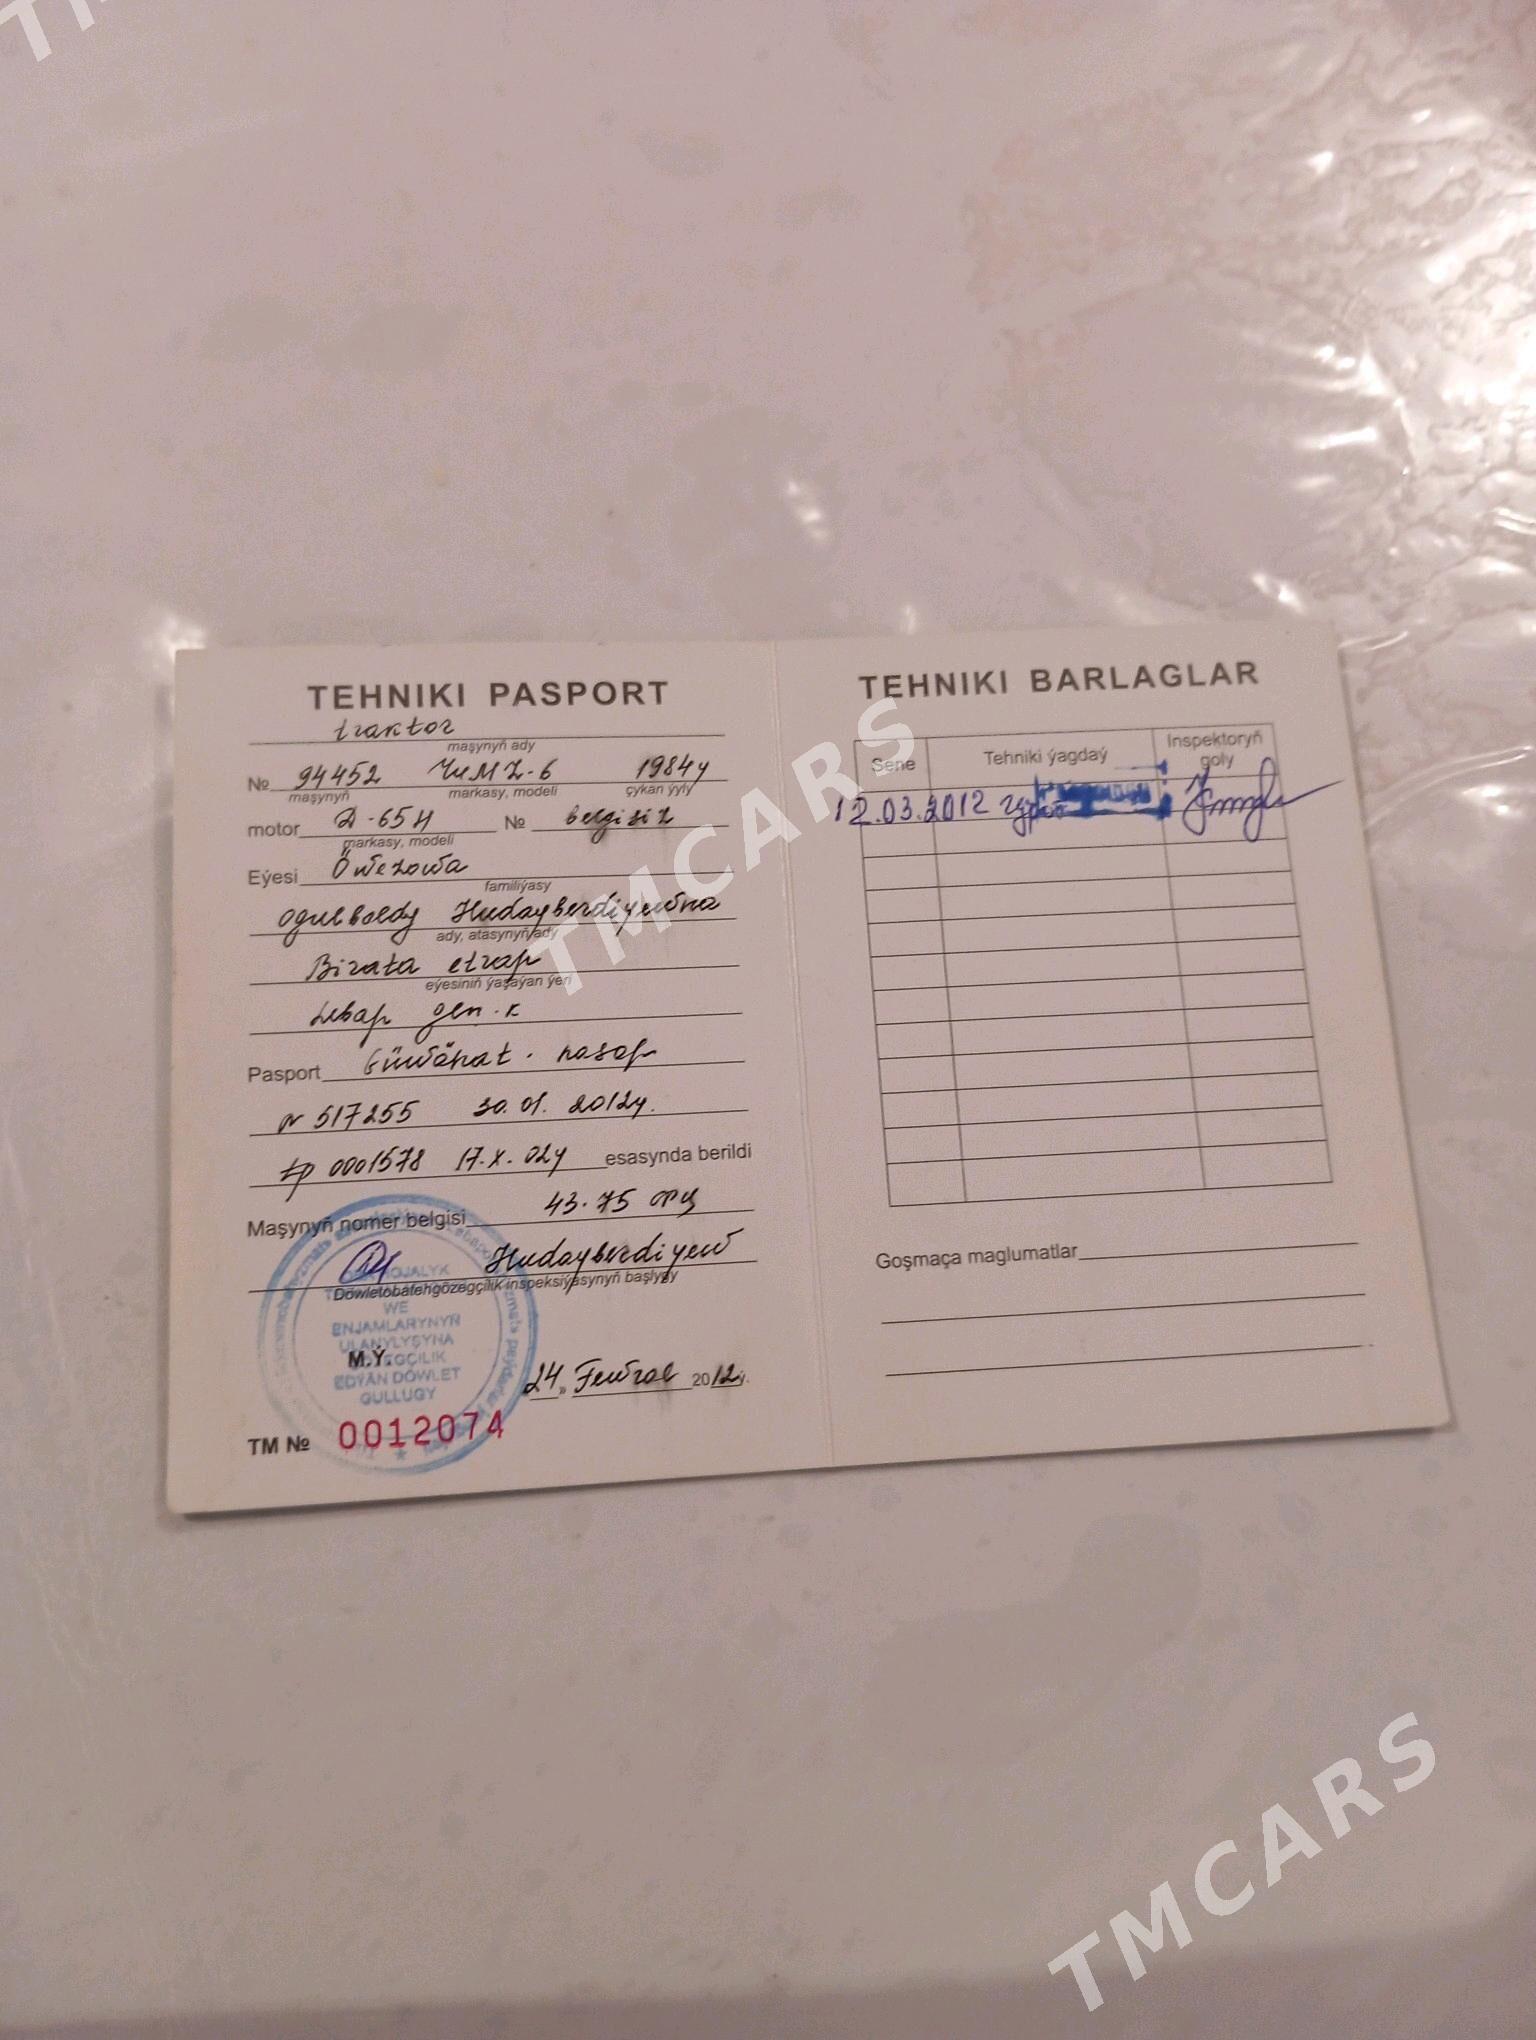 TEHNIKI PASPORT
traktor
maşynyň ady
№ 94452 ЮМZ-6 1984ý
maşynyň markasy, modeli çykan ýyly
motor Д-65Н № belgisiz
markasy, modeli
Eýesi Öwezowa
familiýasy
Ogulboldy Hudaýberdiyewna
ady, atasynyň ady
Birata etrap
eýesiniň ýaşaýan ýeri
Lebap gen.k
Pasport Güwänat. nasap
№ 517255 30.01.2012ý.
tp 0001578 17.X.02ý esasynda berildi
Maşynyň nomer belgisi 43.75
Hudaýberdiyew
Döwletobatehgözegçilik inspeksiýasynyň başlygy
WE
ENJAMLARYNYŇ
ULANYLYŞYNA
GÖZEGÇILIK
EDÝÄN DÖWLET
GULLUGY
M.Ý.
24 „ Fewral 2012ý.
TM № 0012074
TEHNIKI BARLAGLAR
Sene Tehniki ýagdaý Inspektoryň goly
12.03.2012
Goşmaça maglumatlar
TMCARS
TMCARS